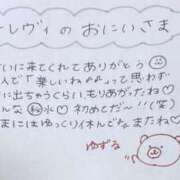 レヴィのおにいさま
いに来てくれてありがとう
人で「楽しいね」って思わず
に出ちゃうくらい、もりあがたね♡
んな㊙水♡初めてだ〜(笑)
まにはゆっくりイれんでなまたね♡
ゆずな